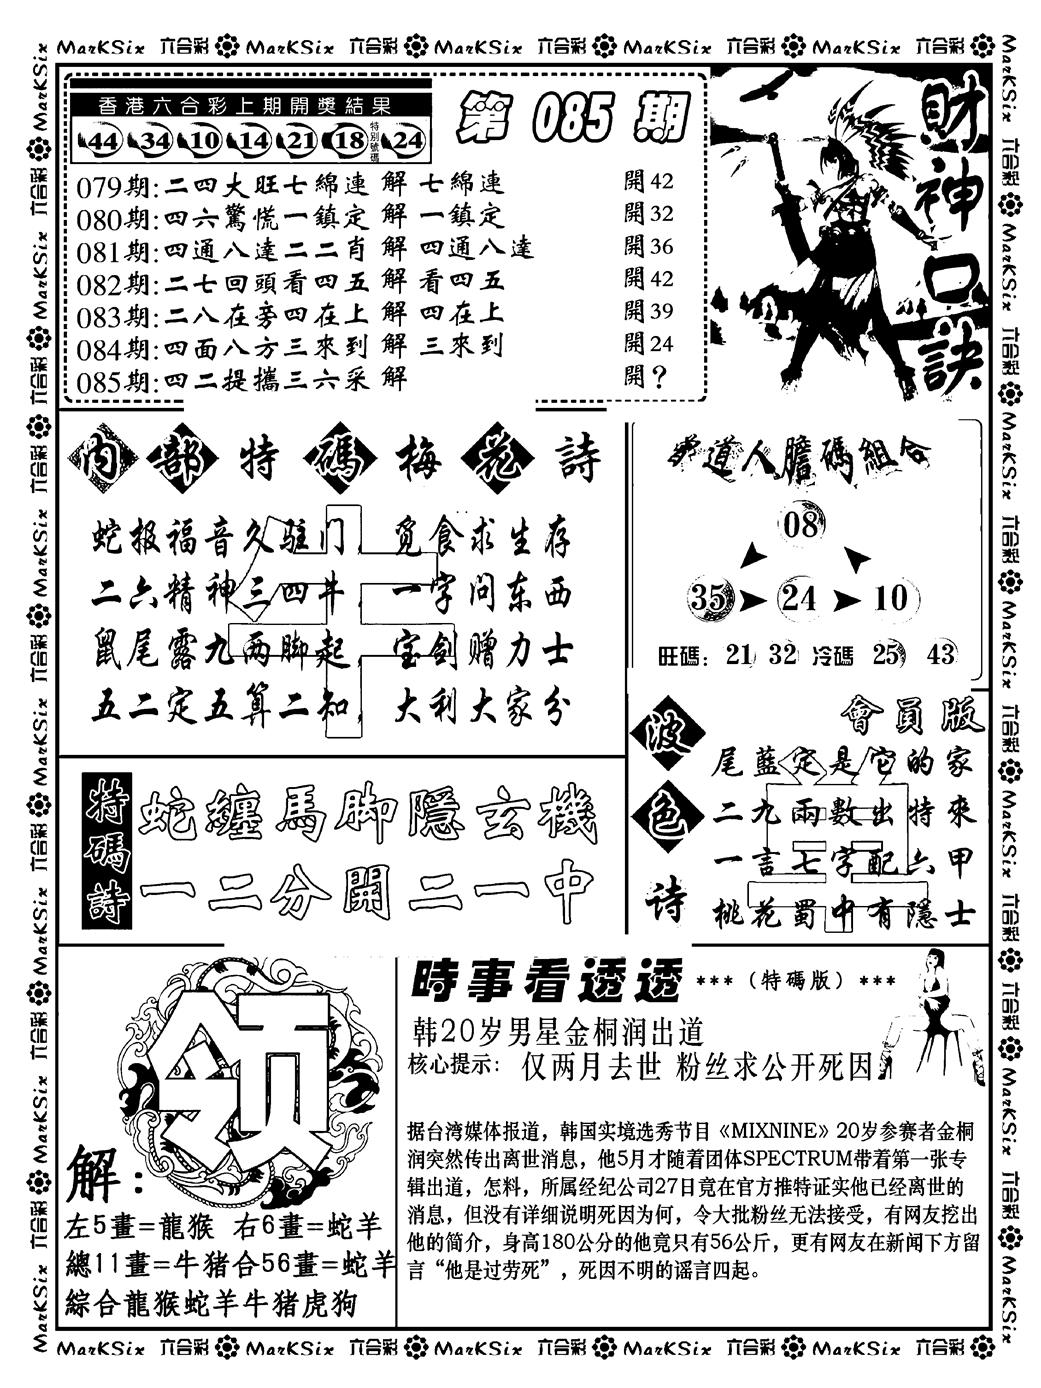 MarKSix 六合彩 MarKSix 六合彩 MarKSix 六合彩 MarKSix 六合彩 MarKSix 六合彩
香港六合彩上期開獎結果
44 34 10 14 21 18 特別號碼 24
第 085 期
079期:二四大旺七綿連 解 七綿連 開42
080期:四六驚慌一鎮定 解 一鎮定 開32
081期:四通八達二二肖 解 四通八達 開36
082期:二七回頭看四五 解 看四五 開42
083期:二八在旁四在上 解 四在上 開39
084期:四面八方三來到 解 三來到 開24
085期:四二提攜三六采 解 開?
財神口訣
内部特碼梅花詩
蛇报福音久驻门, 觅食求生存
二六精神三四牛, 一字问东西
鼠尾露九两脚起, 宝剑赠力士
五二定五算二知, 大利大家分
道人膽碼組合
08
35 24 10
旺碼: 21 32 冷碼 25 43
特碼詩
蛇纏馬脚隱玄機
一二分開二一中
波色诗
會員版
尾藍定是它的家
二九兩數出特來
一言七字配六甲
桃花蜀中有隱士
领
解:
左5畫=龍猴 右6畫=蛇羊
總11畫=牛猪合56畫=蛇羊
綜合龍猴蛇羊牛猪虎狗
時事看透透 ***(特碼版)***
韩20岁男星金桐润出道
核心提示: 仅两月去世 粉丝求公开死因
据台湾媒体报道，韩国实境选秀节目《MIXNINE》20岁参赛者金桐
润突然传出离世消息，他5月才随着团体SPECTRUM带着第一张专
辑出道，怎料，所属经纪公司27日竟在官方推特证实他已经离世的
消息，但没有详细说明死因为何，令大批粉丝无法接受，有网友挖出
他的简介，身高180公分的他竟只有56公斤，更有网友在新闻下方留
言“他是过劳死”，死因不明的谣言四起。
MarKSix 六合彩 MarKSix 六合彩 MarKSix 六合彩 MarKSix 六合彩 MarKSix 六合彩